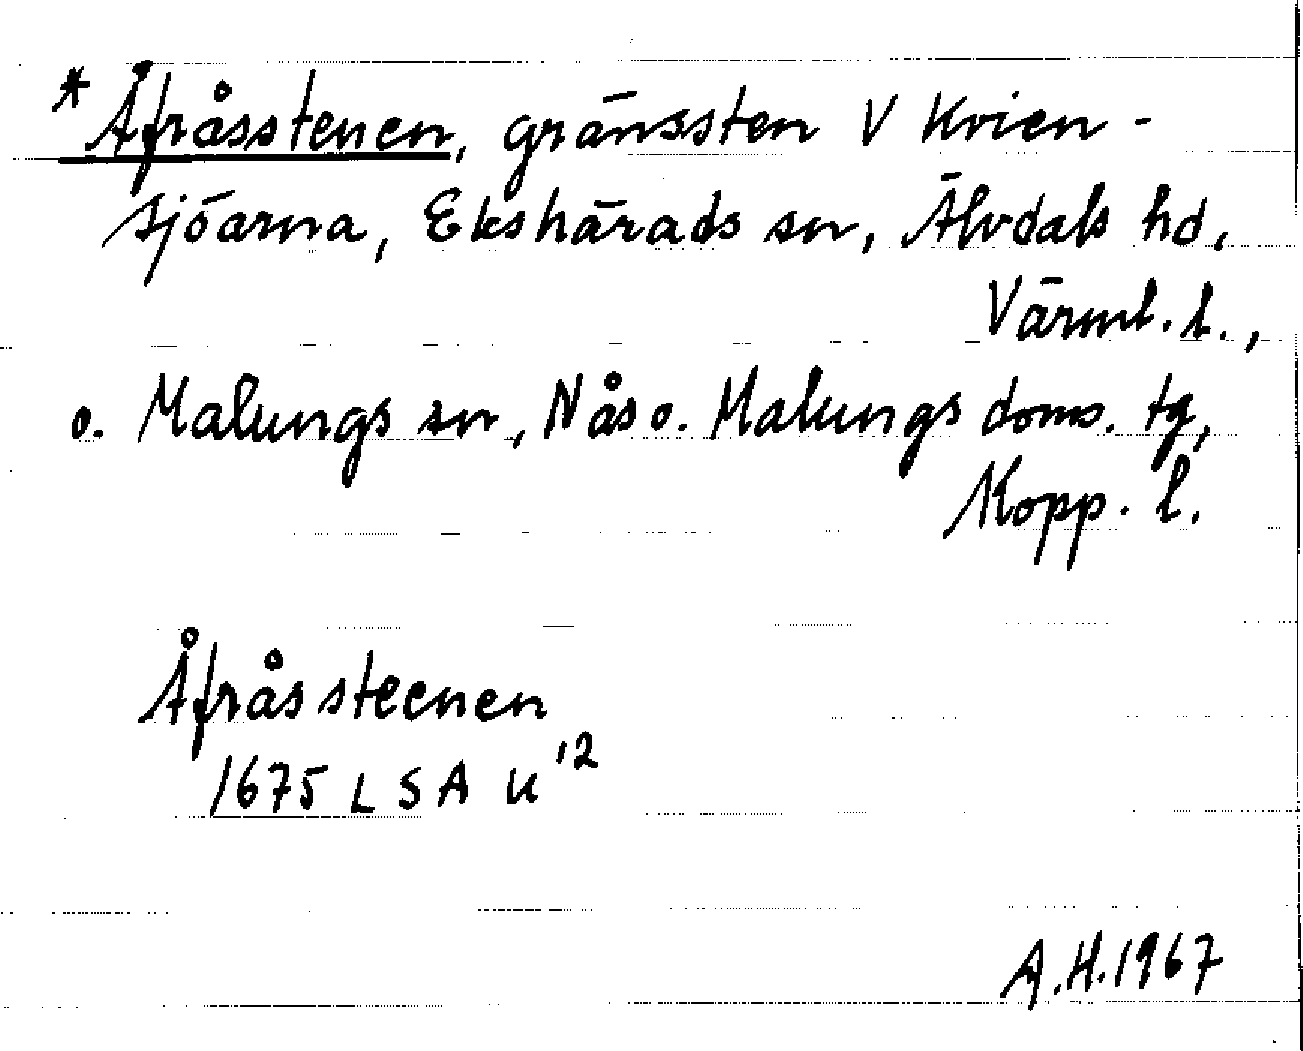 * Åfråsstenen, gränssten V Kvien-
sjöarna, Ekshärads sn, Älvdals hd,
Värml. l.,
o. Malungs sn, Nås o. Malungs doms. tg,
Kopp. l.
Åfråssteenen
1675 LSA U '2
A.H. 1967